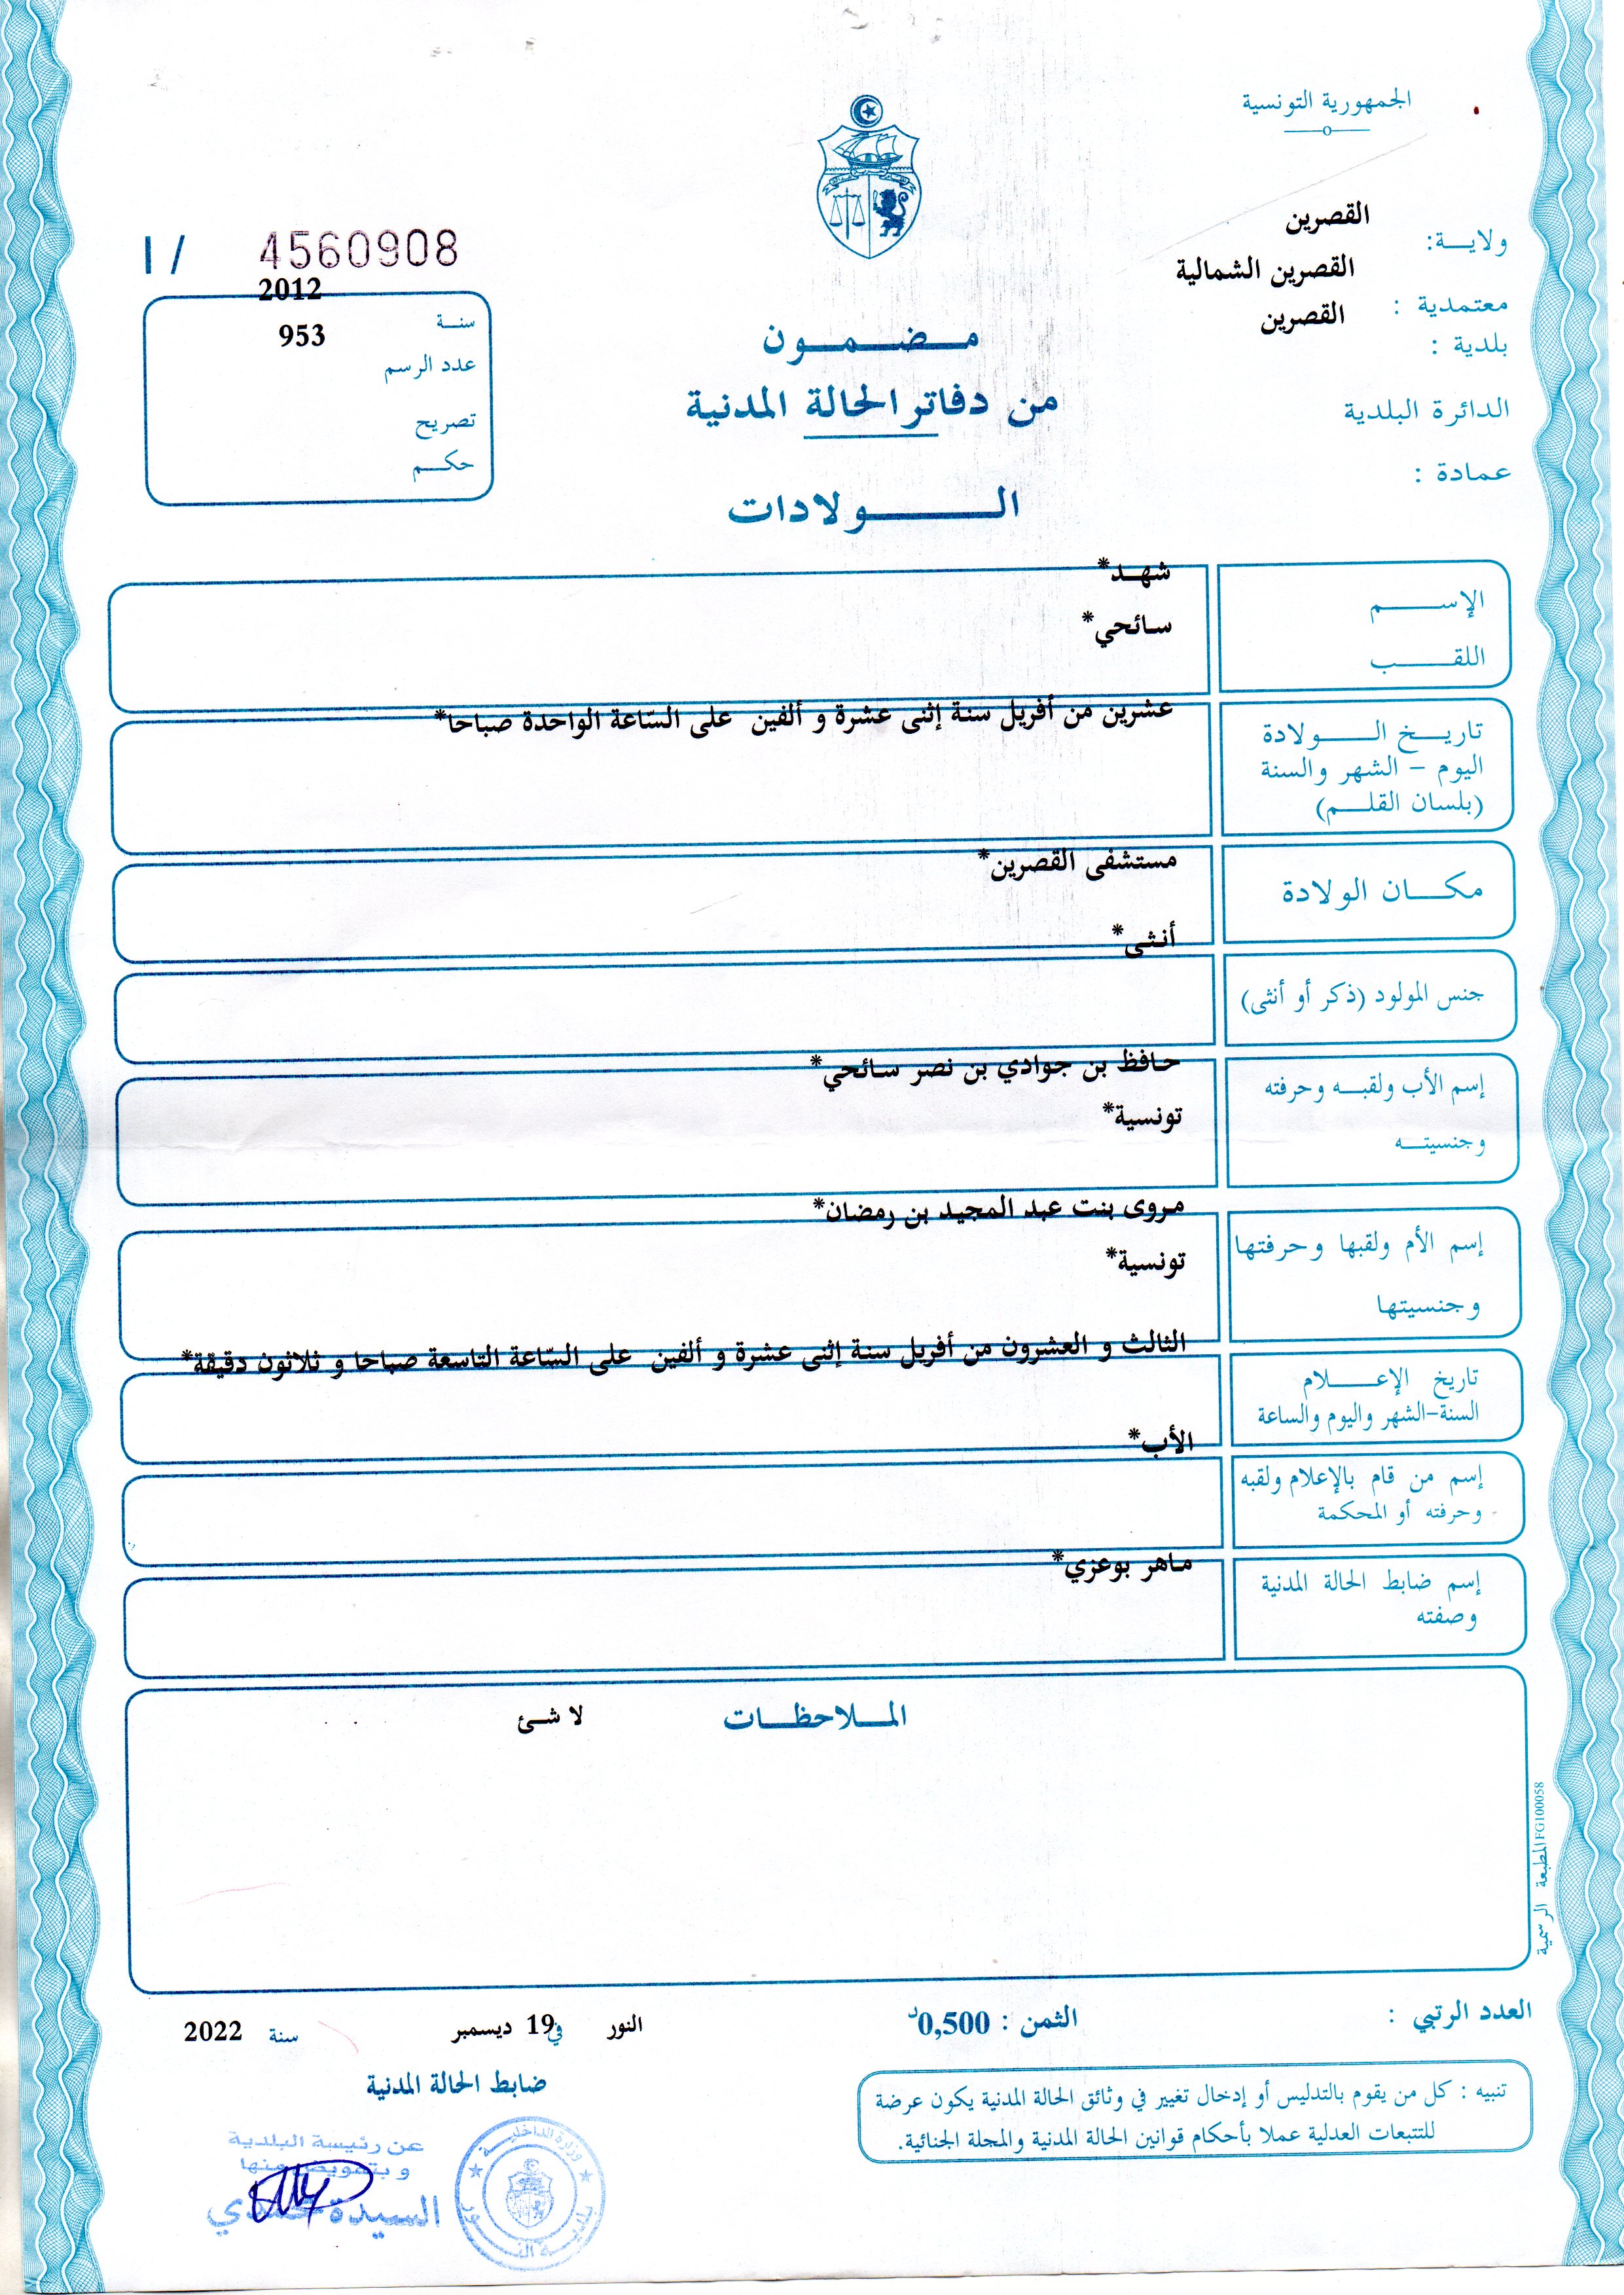 الجمهورية التونسية
ولايـــة: القصرين
معتمدية : القصرين الشمالية
بلدية : القصرين
الدائرة البلدية
عمادة :
I / 4560908
سنـة 2012
عدد الرسم 953
تصريح
حكـــم
مـــضـــمـــون
من دفاتر الحالة المدنية
الـــــــولادات
الإســـــــم شهـد*
اللقــــــب سائحي*
تاريــــخ الــــــولادة عشرين من أفريل سنة إثنى عشرة و ألفين على السّاعة الواحدة صباحا*
اليوم – الشهر والسنة
(بلسان القلـــم)
مكـــان الولادة مستشفى القصرين*
جنس المولود (ذكر أو أنثى) أنثى*
إسم الأب ولقبــه وحرفته حافظ بن جوادي بن نصر سائحي*
وجنسيتــه تونسية*
إسم الأم ولقبها وحرفتها مروى بنت عبد المجيد بن رمضان*
وجنسيتها تونسية*
تاريخ الإعـــــلام الثالث و العشرون من أفريل سنة إثنى عشرة و ألفين على السّاعة التاسعة صباحا و ثلاثون دقيقة*
السنة–الشهر واليوم والساعة
إسم من قام بالإعلام ولقبه الأب*
وحرفته أو المحكمة
إسم ضابط الحالة المدنية ماهر بوعزي*
وصفته
المــلاحظــات لا شئ
المطبعة الرسمية FG100058
العدد الرتبي :
الثمن : 0,500د
النور في 19 ديسمبر سنة 2022
ضابط الحالة المدنية
تنبيه : كل من يقوم بالتدليس أو إدخال تغيير في وثائق الحالة المدنية يكون عرضة
للتتبعات العدلية عملا بأحكام قوانين الحالة المدنية والمجلة الجنائية.
عن رئيسة البلدية
و بتفويض منها
السيدة حمدي
وزارة الداخليـــة